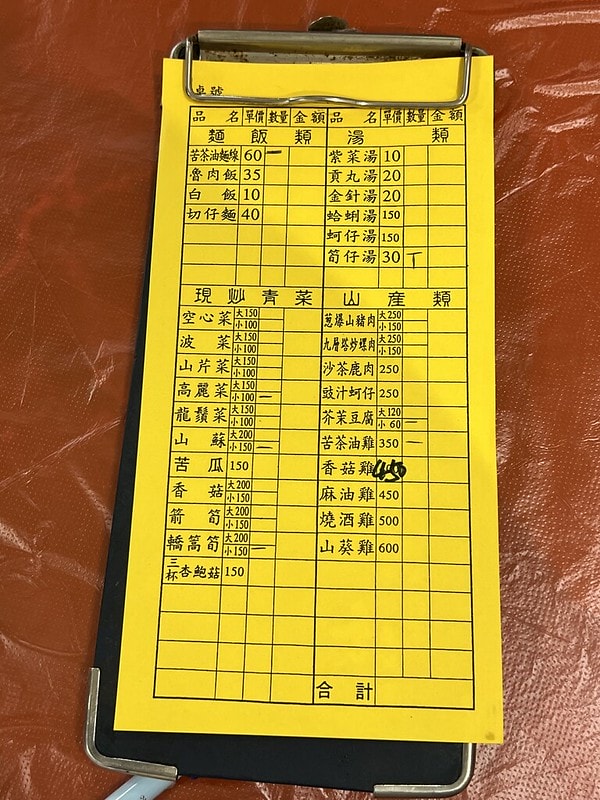 桌號
品名 單價 數量 金額 品名 單價 數量 金額
麵飯類
苦茶油麵線 60 一
魯肉飯 35
白飯 10
切仔麵 40
湯類
紫菜湯 10
貢丸湯 20
金針湯 20
蛤蜊湯 150
蚵仔湯 150
筍仔湯 30 丅
現炒青菜
空心菜 大150 小100
波菜 大150 小100
山芹菜 大150 小100
高麗菜 大150 小100 一
龍鬚菜 大150 小100
山蘇 大200 小150 一
苦瓜 150
香菇 大200 小150
箭筍 大200 小150
轎篙筍 大200 小150 一
三杯杏鮑菇 150
山產類
蔥爆山豬肉 大250 小150
九層塔炒螺肉 大250 小150
沙茶鹿肉 250
豉汁蚵仔 250
芥茉豆腐 大120 小60 一
苦茶油雞 350 一
香菇雞 450
麻油雞 450
燒酒雞 500
山葵雞 600
合計